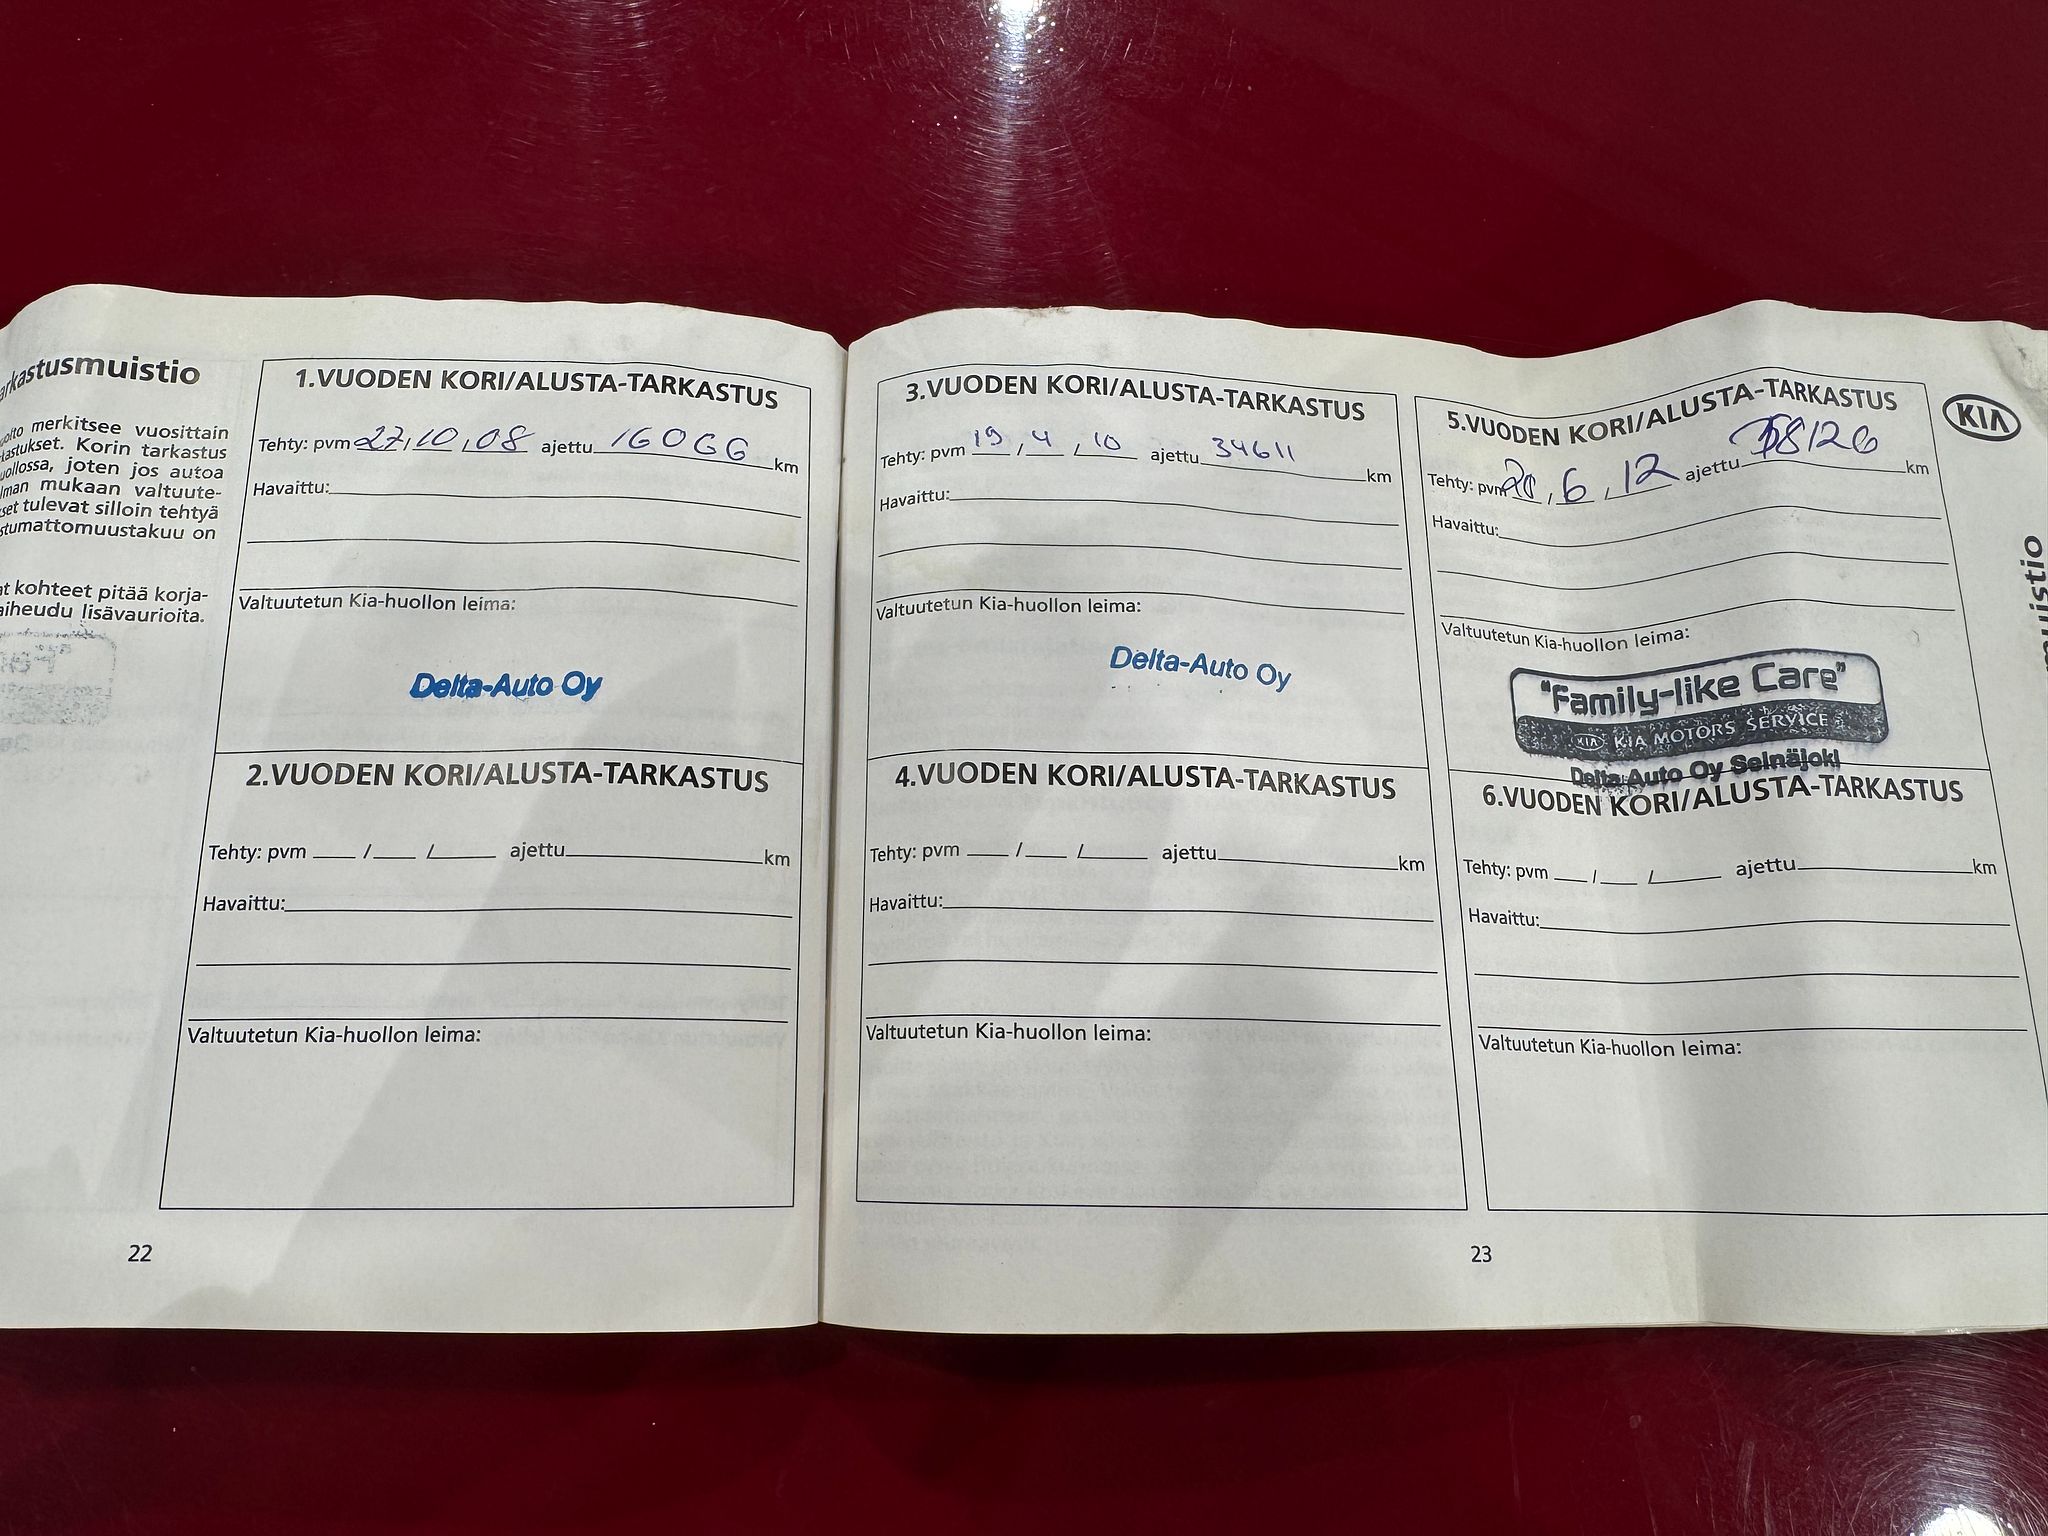 arkastusmuistio
merkitsee vuosittain
Korin tarkastus
joten jos autoa
mukaan valtuute-
set tulevat silloin tehtyä
stumattomuustakuu on
at kohteet pitää korja-
aiheudu lisävaurioita.
1.VUODEN KORI/ALUSTA-TARKASTUS
Tehty: pvm 27,10,08 ajettu 16066 km
Havaittu:
Valtuutetun Kia-huollon leima:
Delta-Auto Oy
2.VUODEN KORI/ALUSTA-TARKASTUS
Tehty: pvm ___ /___ /____ ajettu km
Havaittu:
Valtuutetun Kia-huollon leima:
22
3.VUODEN KORI/ALUSTA-TARKASTUS
Tehty: pvm 19,4,10 ajettu 34611 km
Havaittu:
Valtuutetun Kia-huollon leima:
Delta-Auto Oy
4.VUODEN KORI/ALUSTA-TARKASTUS
Tehty: pvm ___ /___ /____ ajettu km
Havaittu:
Valtuutetun Kia-huollon leima:
5.VUODEN KORI/ALUSTA-TARKASTUS
Tehty: pvm 20,6,12 ajettu 58126 km
Havaittu:
Valtuutetun Kia-huollon leima:
"Family-like Care"
KIA KIA MOTORS SERVICE
Delta-Auto Oy Seinäjoki
6.VUODEN KORI/ALUSTA-TARKASTUS
Tehty: pvm ___ /___ /____ ajettu km
Havaittu:
Valtuutetun Kia-huollon leima:
23
KIA
muistio